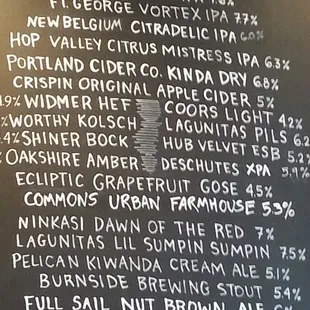 FT. GEORGE VORTEX IPA 7.7%
NEW BELGIUM CITRADELIC IPA 6.0%
HOP VALLEY CITRUS MISTRESS IPA 6.3%
PORTLAND CIDER CO. KINDA DRY 6.8%
CRISPIN ORIGINAL APPLE CIDER 5%
.9% WIDMER HEF COORS LIGHT 4.2%
% WORTHY KOLSCH LAGUNITAS PILS 6.2
.4% SHINER BOCK HUB VELVET ESB 5.2
% OAKSHIRE AMBER DESCHUTES XPA 5.9%
ECLIPTIC GRAPEFRUIT GOSE 4.5%
COMMONS URBAN FARMHOUSE 5.3%
NINKASI DAWN OF THE RED 7%
LAGUNITAS LIL SUMPIN SUMPIN 7.5%
PELICAN KIWANDA CREAM ALE 5.1%
BURNSIDE BREWING STOUT 5.4%
FULL SAIL NUT BROWN ALE